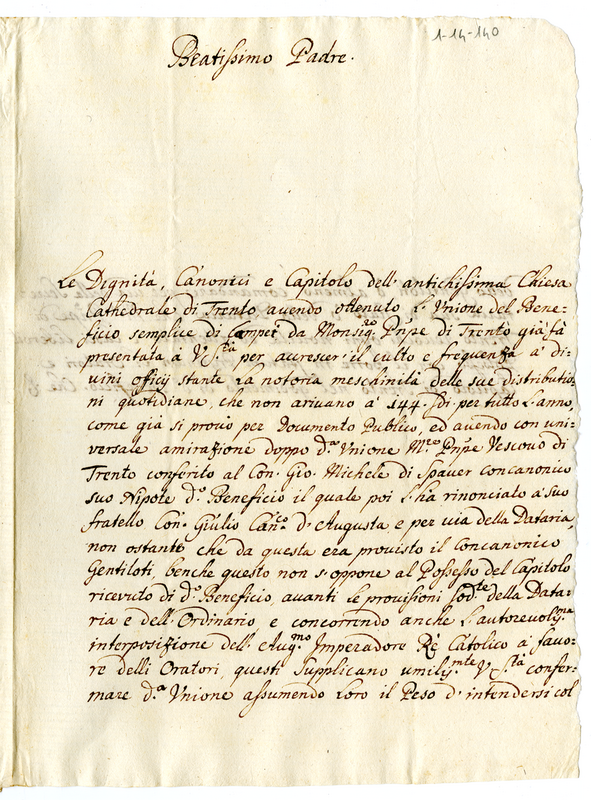 1-14-140
Beatissimo Padre.
Le Dignità, Canonici e Capitolo dell' antichissima Chiesa
Cathedrale di Trento avendo ottenuto l' Unione del Bene-
ficio semplice di Campei da Monsig.ro Pnpe di Trento già fà
presentata à V. S.tà per accrescer' il culto e frequenza à di-
vini officij stante la notoria meschinità delle sue distributio-
ni quotidiane, che non arivano a' 144. di per tutto l'anno,
come già si provò per documento Publico, ed avendo con uni-
versale amirazione doppo d.a Unione Pnpe Vescovo di
Trento conferito al Con. Gio. Michele di Spauer concanonico
suo Nipote d.o Beneficio il quale poi l'ha rinonciato a suo
fratello Con. Giulio Can.co d'Augusta, e per via della Dataria,
non ostante che da questa era provisto il Concanonico
Gentiloti, benche questo non s'oppone al Possesso del Capitolo
ricevuto di d.o Beneficio, avanti le provisioni sod.te della Data-
ria e dell' Ordinario e concorrendo anche l'autorevoliss.ma
interposizione dell' Aug.mo Imperadore Rè Catolico à favo-
re delli Oratori, questi supplicano umiliss.mte V. S.tà confer-
mare d.a Unione assumendo loro il Peso d'intendersi col